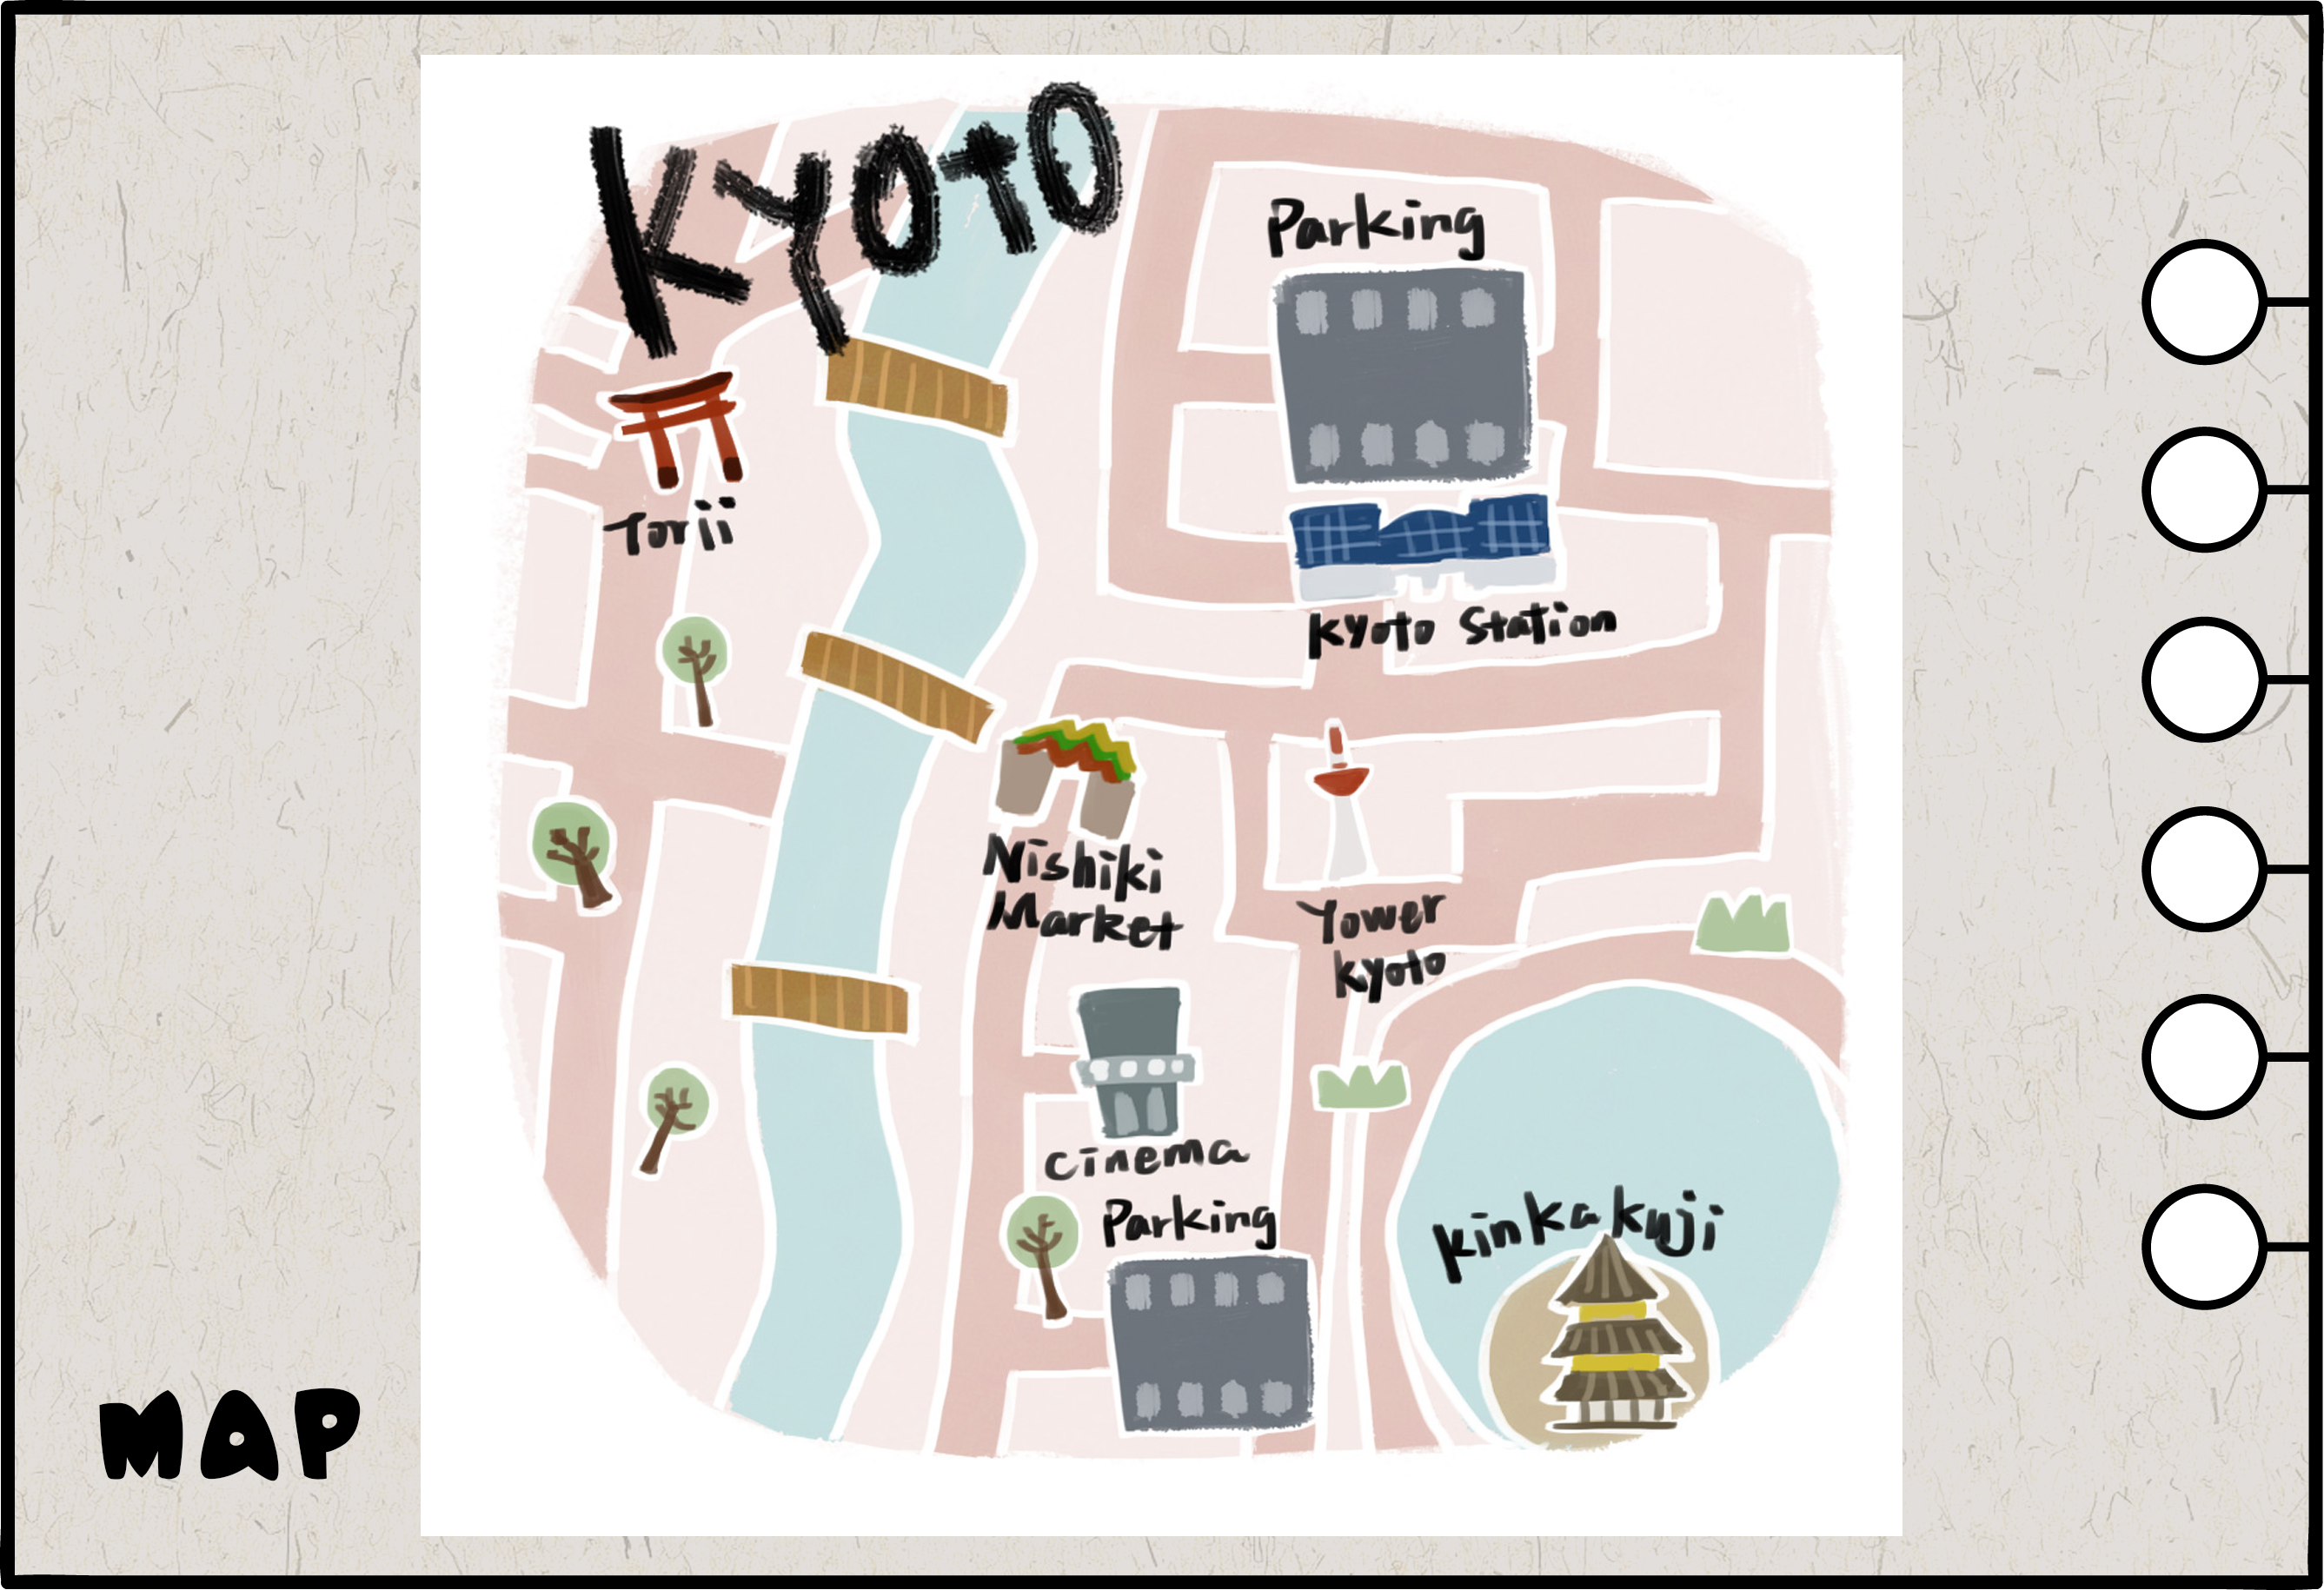 KYOTO
Parking
Torii
Kyoto Station
Nishiki
Market
Tower
Kyoto
cinema
Parking
Kinkakuji
MAP